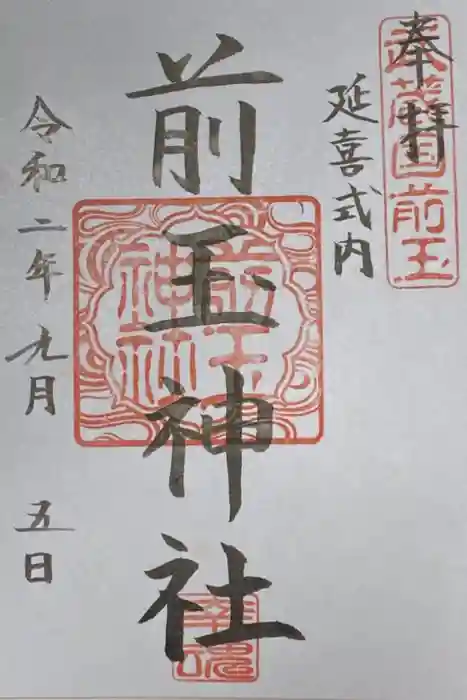 奉拝
武蔵国前玉
延喜式内
前玉神社
前玉
神社
幸魂
令和二年九月五日